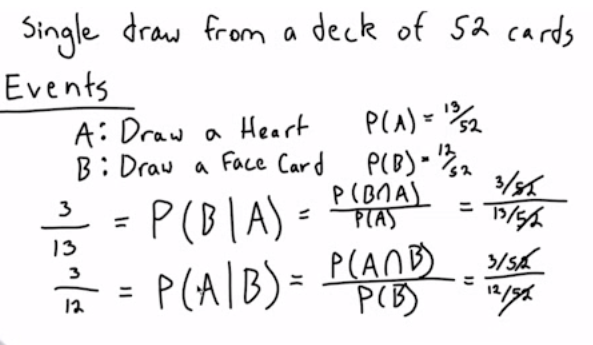 Single draw from a deck of 52 cards
Events
A: Draw a Heart P(A) = 13/52
B: Draw a Face Card P(B) = 12/52
3/13 = P(B|A) = P(B∩A)/P(A) = 3/52 / 13/52
3/12 = P(A|B) = P(A∩B)/P(B) = 3/52 / 12/52